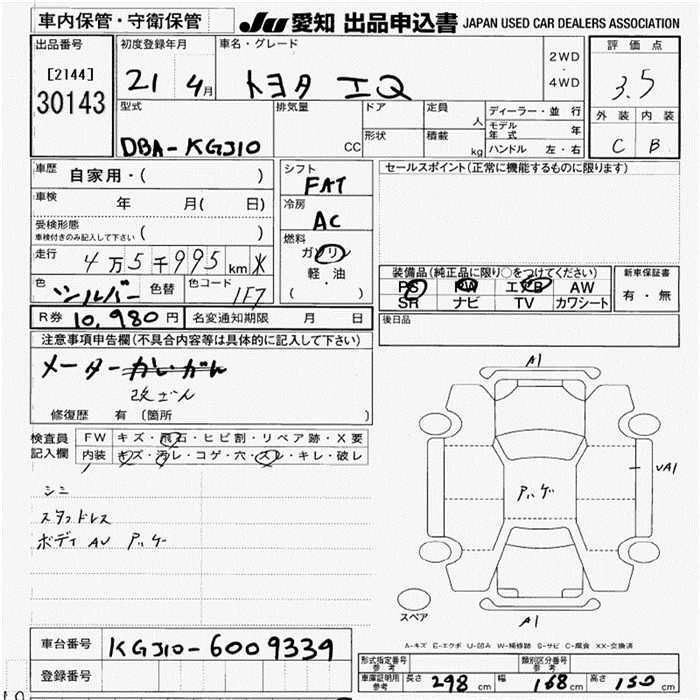 車内保管・守衛保管
JU 愛知 出品申込書 JAPAN USED CAR DEALERS ASSOCIATION
出品番号
[2144]
30143
初度登録年月
21 4月
車名・グレード
トヨタ IQ
2WD
・
4WD
評価点
3.5
外装 内装
C B
型式
DBA-KGJ10
排気量
CC
ドア
形状
定員
人
積載
kg
ディーラー・並行
モデル年式 年
ハンドル 左・右
車歴 自家用・( )
車検 年 月( 日)
受検形態
車検付きのみ記入して下さい ( )
走行 4万5千995km
色 シルバー 色替 色コード 1F7
シフト
FAT
冷房
AC
燃料
ガソリン
軽・油
( )
セールスポイント(正常に機能するものに限ります)
装備品(純正品に限り○をつけてください)
PS PW エアB AW
SR ナビ TV カワシート
新車保証書
有・無
R券 10,980円 名変通知期限 月 日
後日品
注意事項申告欄(不具合内容等は具体的に記入して下さい)
メーターかいがん
改ざん
修復歴 有 〔箇所 〕
検査員記入欄
FW キズ・飛石・ヒビ割・リペア跡・X要
内装 キズ・汚レ・コゲ・穴・スレ・キレ・破レ
シミ
スタッドレス
ボディ AU アッケー
A1
UA1
アッケー
A1
スペア
A-キズ E-エクボ U-凹み W-補修跡 S-サビ C-腐食 XX-交換済
車台番号 KGJ10-6009339
登録番号
形式指定番号 参考
類別区分番号 参考
車庫証明用参考 長さ 298 cm 幅 168 cm 高さ 150 cm